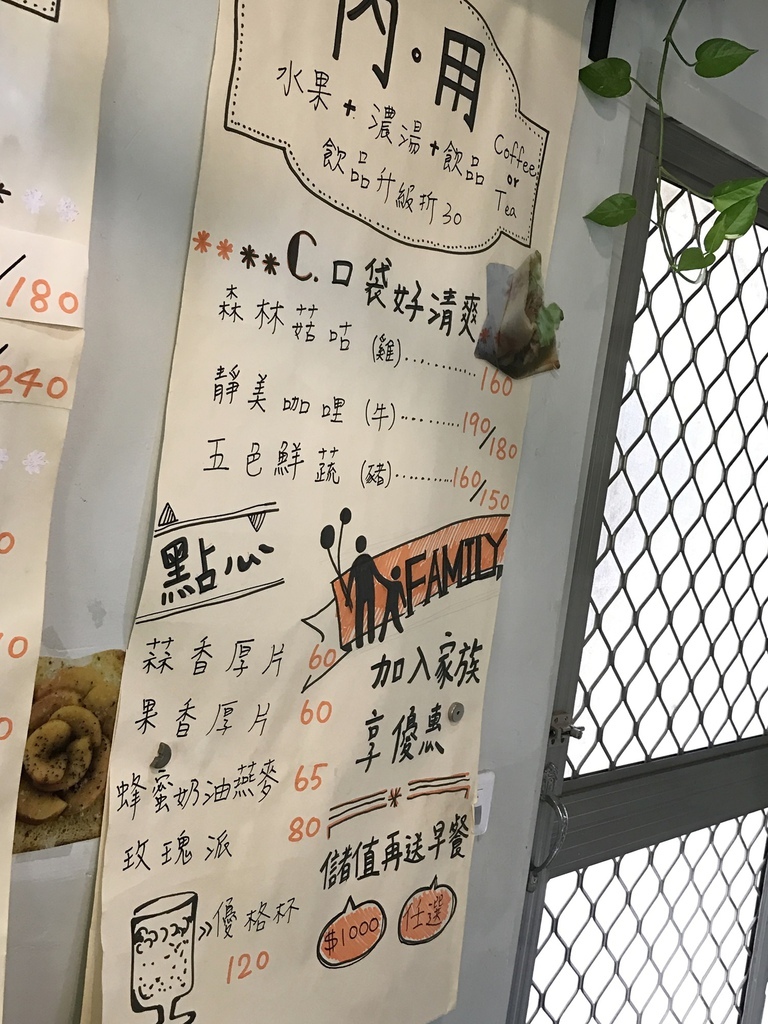 內·用
水果+濃湯+飲品 Coffee or Tea
飲品升級折30
C.口袋好清爽
森林菇咕(雞)........160
靜美咖哩(牛)........190/180
五色鮮蔬(豬)........160/150
點心
蒜香厚片 60
果香厚片 60
蜂蜜奶油燕麥 65
玫瑰派 80
優格杯
120
FAMILY
加入家族
享優惠
儲值再送早餐
$1000 任選
/180
240